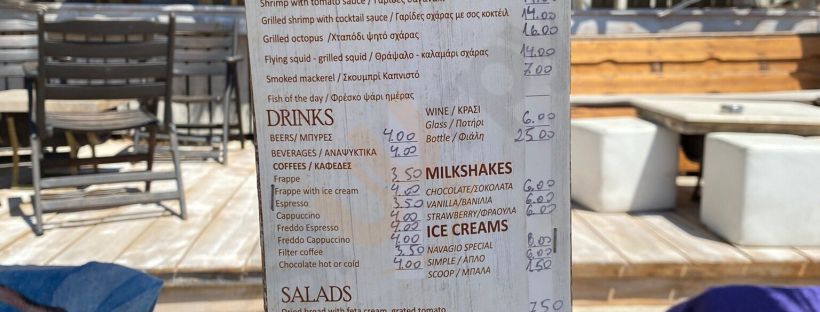 Shrimp with tomato sauce / Γαρίδες σαγανάκι 14.00
Grilled shrimp with cocktail sauce / Γαρίδες σχάρας με σος κοκτέιλ 14.00
Grilled octopus /Χταπόδι ψητό σχάρας 16.00
Flying squid - grilled squid / Θράψαλο - καλαμάρι σχάρας 14.00
Smoked mackerel / Σκουμπρί Καπνιστό 7.00
Fish of the day / Φρέσκο ψάρι ημέρας
DRINKS
BEERS/ ΜΠΥΡΕΣ 4.00
BEVERAGES / ΑΝΑΨΥΚΤΙΚΑ 4.00
COFFEES / ΚΑΦΕΔΕΣ
Frappe 3.50
Frappe with ice cream 4.00
Espresso 3.50
Cappuccino 4.00
Freddo Espresso 4.00
Freddo Cappuccino 4.00
Filter coffee 3.50
Chocolate hot or cold 4.00
WINE / ΚΡΑΣΙ
Glass / Ποτήρι 6.00
Bottle / Φιάλη 25.00
MILKSHAKES
CHOCOLATE/ΣΟΚΟΛΑΤΑ 6.00
VANILLA/ΒΑΝΙΛΙΑ 6.00
STRAWBERRY/ΦΡΑΟΥΛΑ 6.00
ICE CREAMS
NAVAGIO SPECIAL 8.00
SIMPLE / ΑΠΛΟ 6.00
SCOOP / ΜΠΑΛΑ 1.50
SALADS
Dried bread with feta cream, grated tomato 7.50